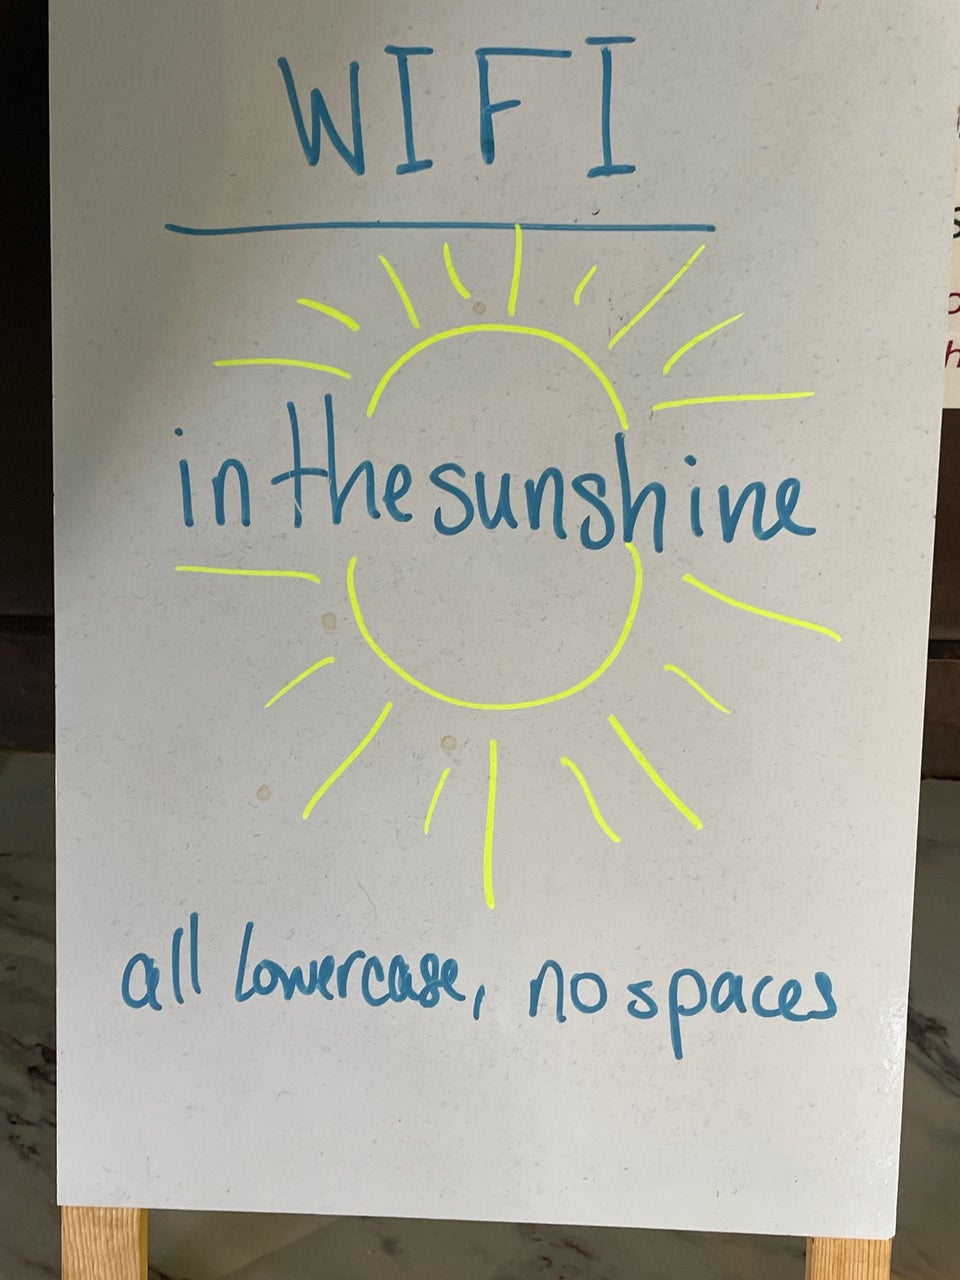 WIFI
inthesunshine
all lowercase, no spaces